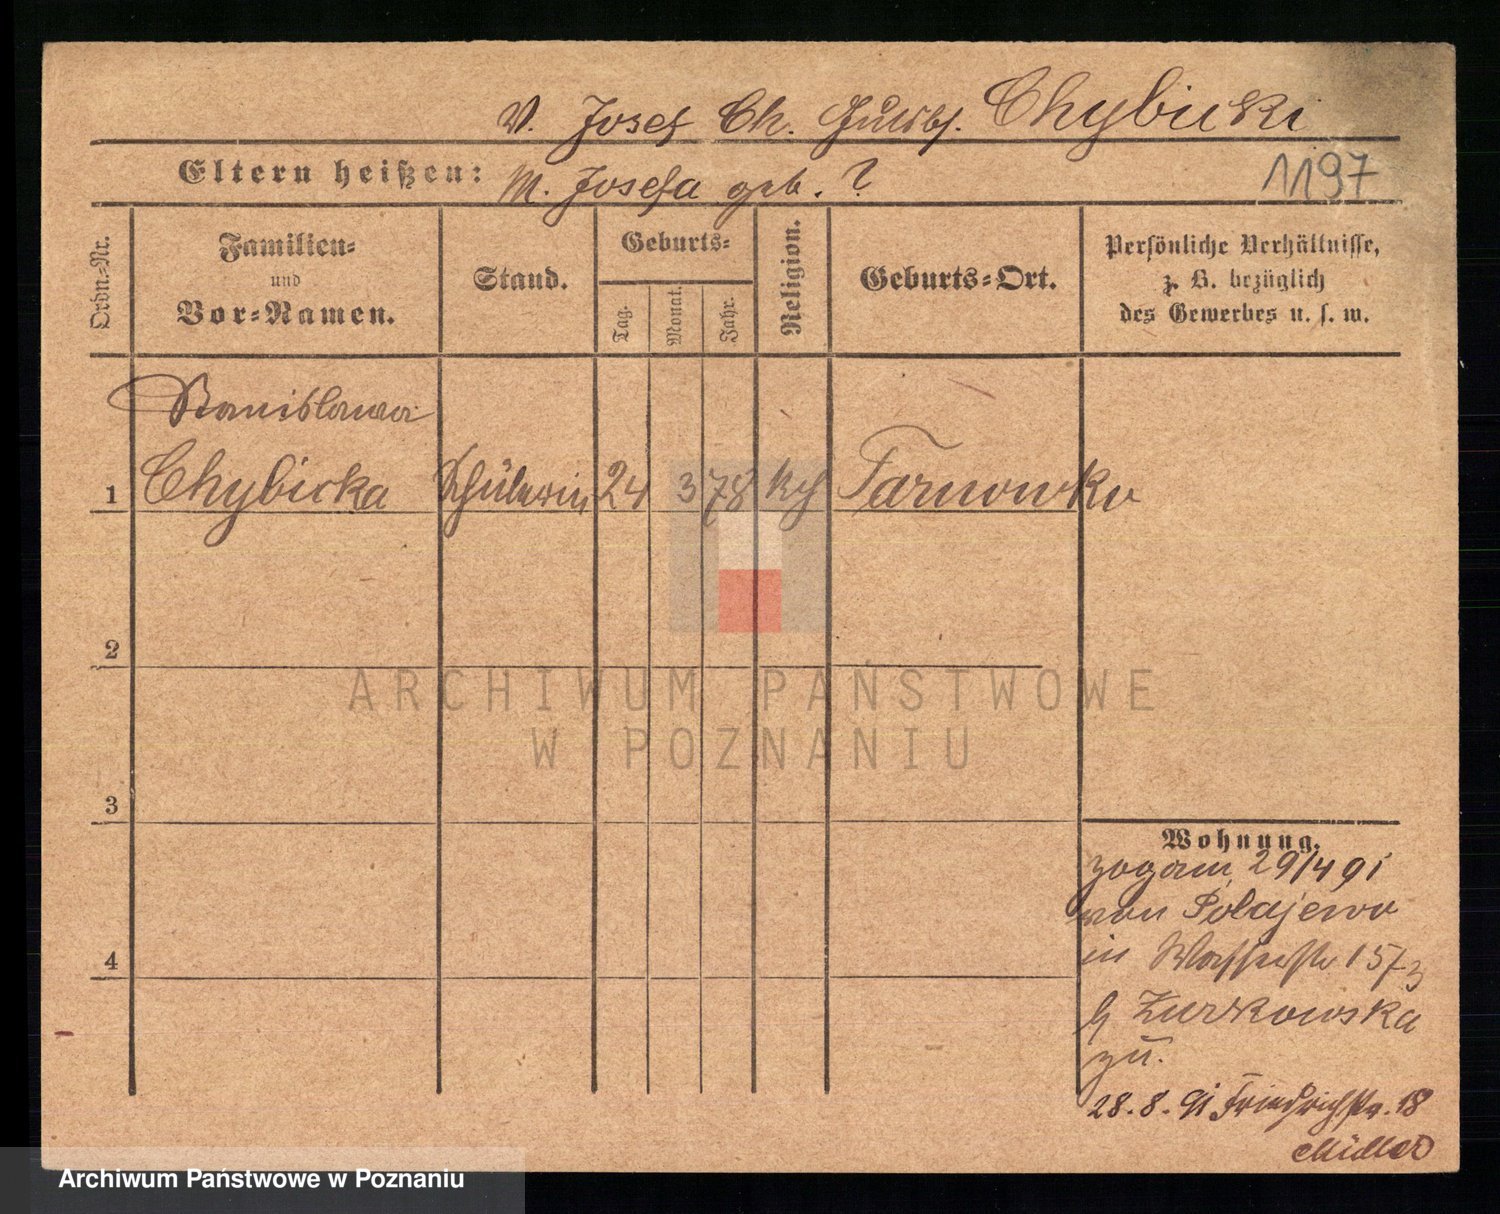 V. Josef Ch. Gutsbs. Chybicki
Eltern heißen: M. Josefa geb. ?
1197
Ordn.-Nr.
Familien-
und
Vor-Namen.
Stand.
Geburts-
Tag.
Monat.
Jahr.
Religion.
Geburts-Ort.
Persönliche Verhältnisse,
z. B. bezüglich
des Gewerbes u. s. w.
Stanislawa
1 Chybicka Schülerin 24 3 78 kth Tarnowko
2
ARCHIWUM PAŃSTWOWE
W POZNANIU
3
Wohnung.
zog am 29/4 91
von Polajewo
in Wasserstr 15 Z
b Zurkowska
zu.
4
28.8.91 Friedrichstr. 18
Archiwum Państwowe w Poznaniu